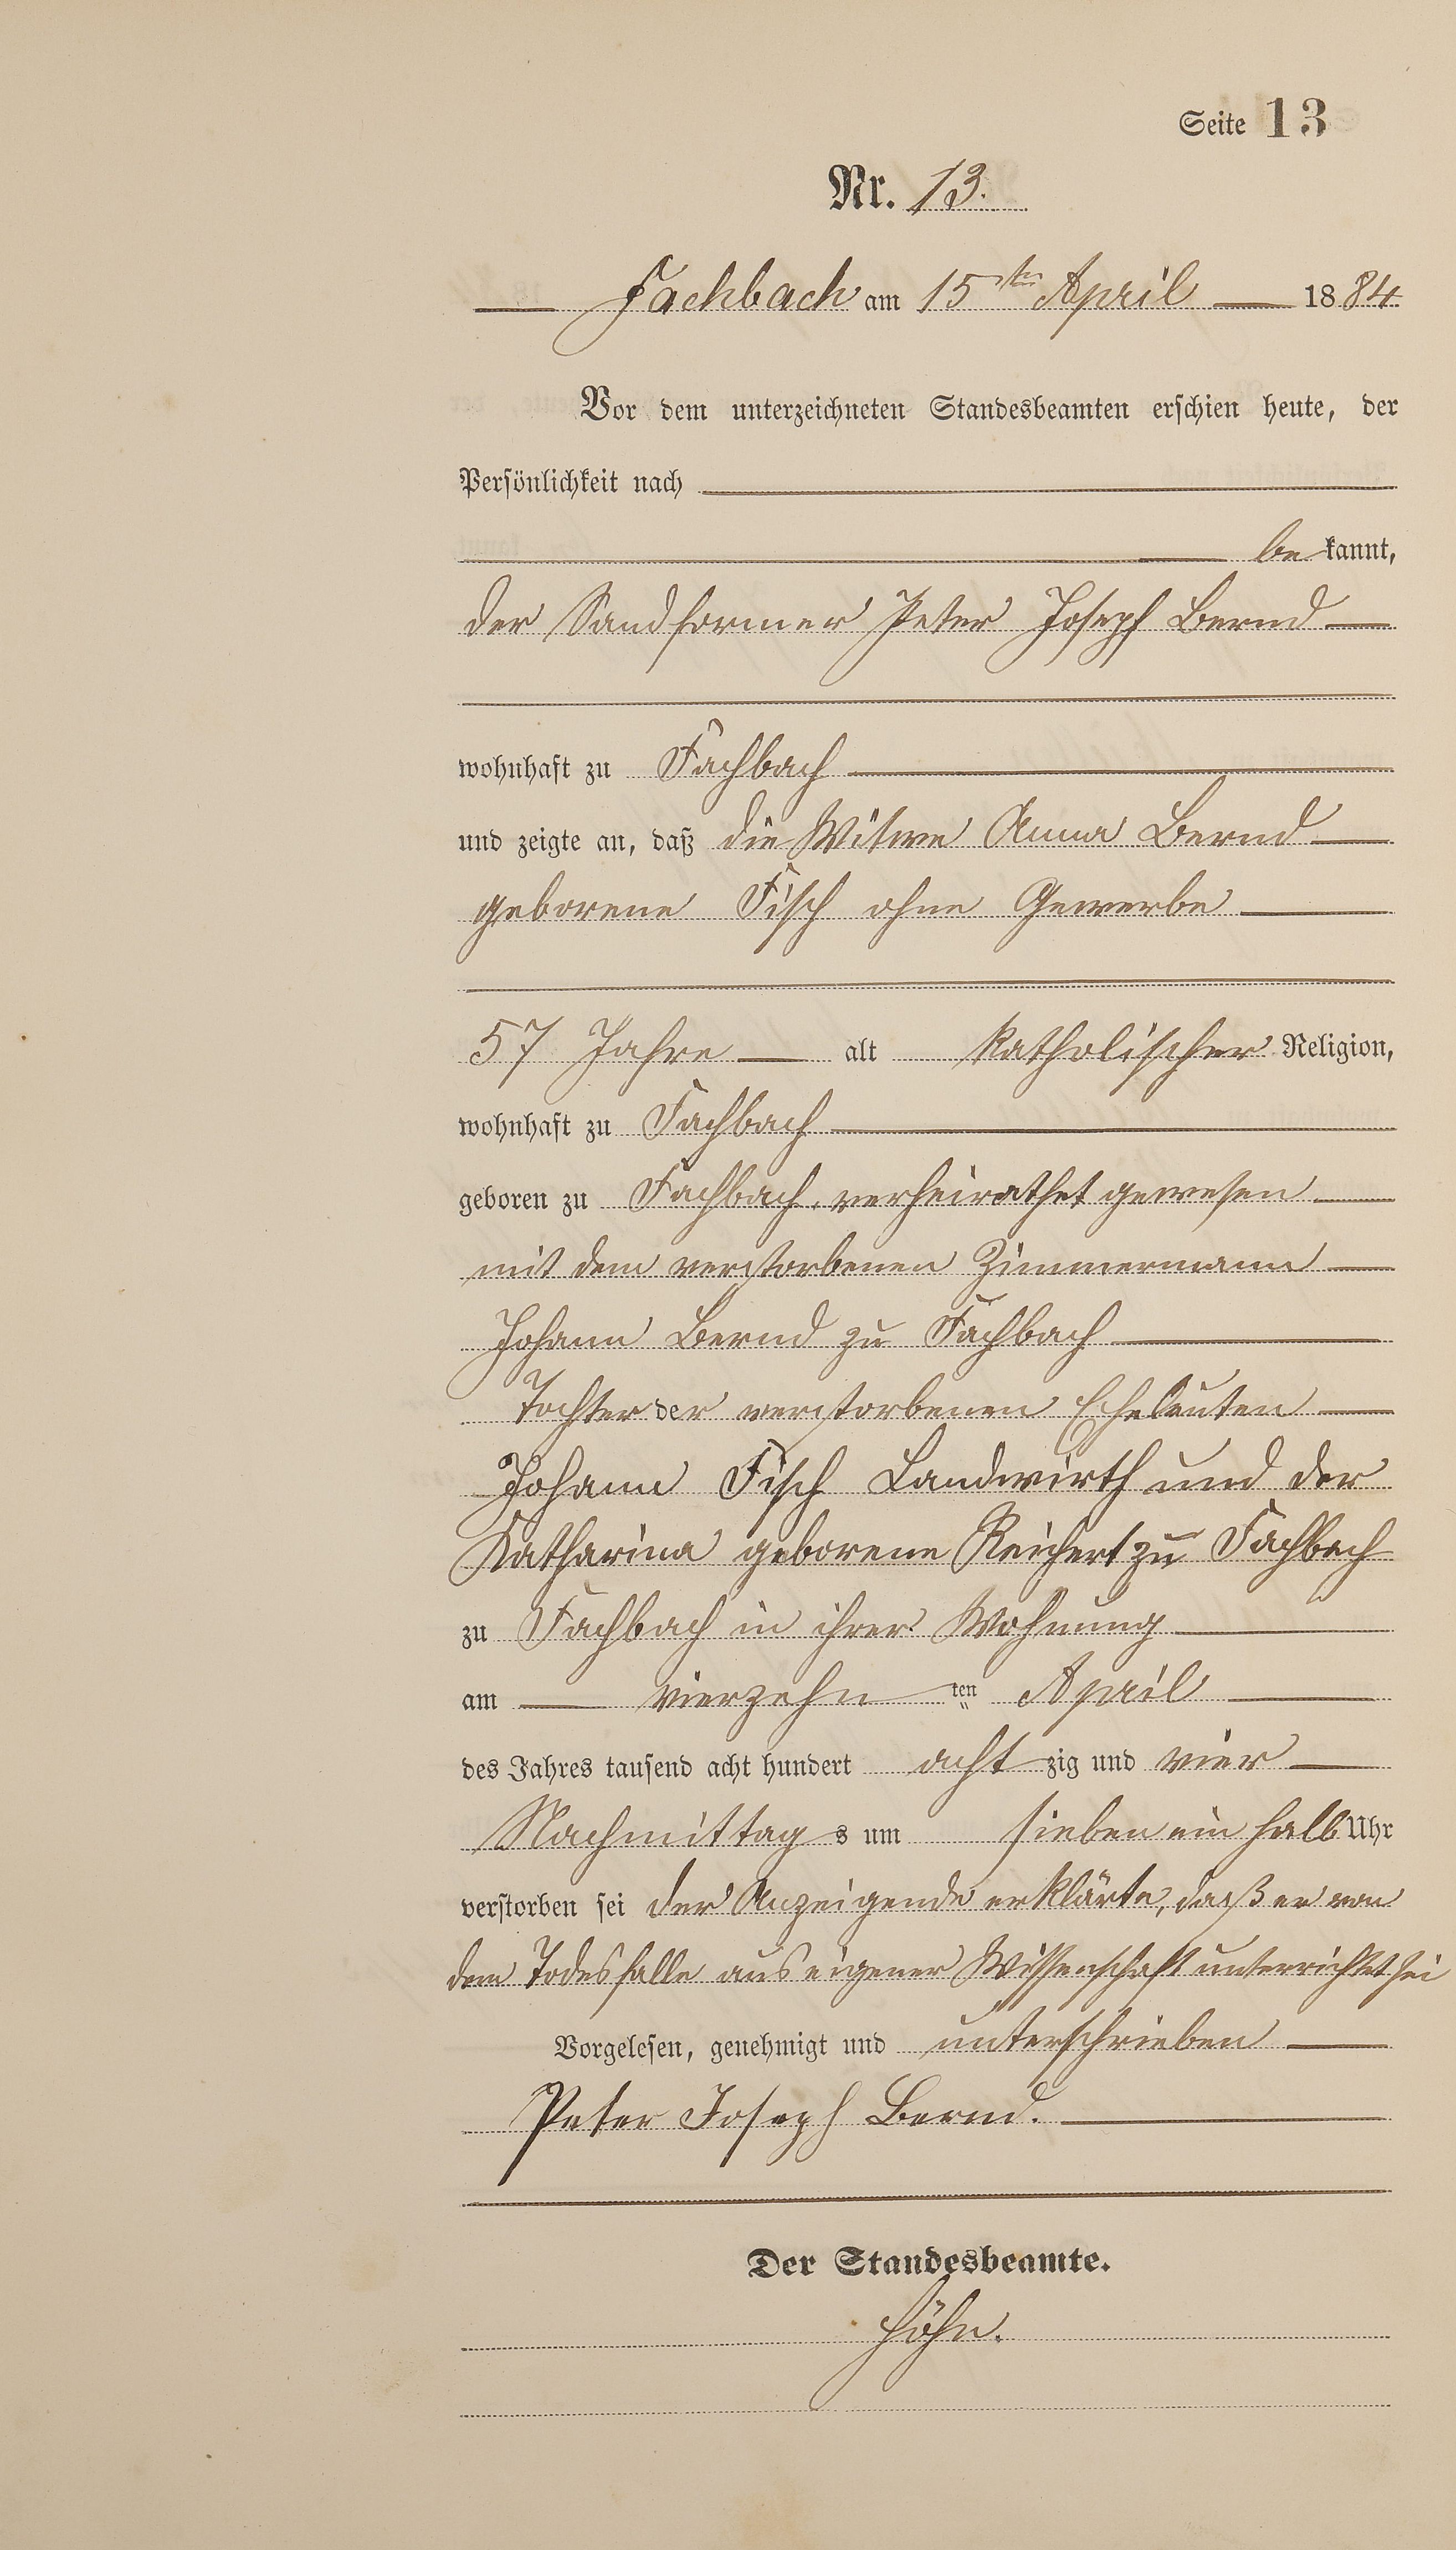 Seite 13
Nr. 13.
Fachbach am 15ten April 1884
Vor dem unterzeichneten Standesbeamten erschien heute, der
Persönlichkeit nach
bekannt,
der Sandformer Peter Joseph Bernd
wohnhaft zu Fachbach
und zeigte an, daß die Witwe Anna Bernd
geborene Fisch ohne Gewerbe
57 Jahre alt katholischer Religion,
wohnhaft zu Fachbach
geboren zu Fachbach, verheirathet gewesen
mit dem verstorbenen Zimmermann
Johann Bernd zu Fachbach
Tochter der verstorbenen Eheleuten
Johann Fisch Landwirth und der
Katharina geborene Reichert zu Fachbach
zu Fachbach in ihrer Wohnung
am vierzehn ten April
des Jahres tausend acht hundert achtzig und vier
Nachmittags um sieben ein halb Uhr
verstorben sei der Anzeigende erklärte, daß er von
dem Todesfalle aus eigener Wissenschaft unterrichtet sei
Vorgelesen, genehmigt und unterschrieben
Peter Joseph Bernd.
Der Standesbeamte.
Höhn.